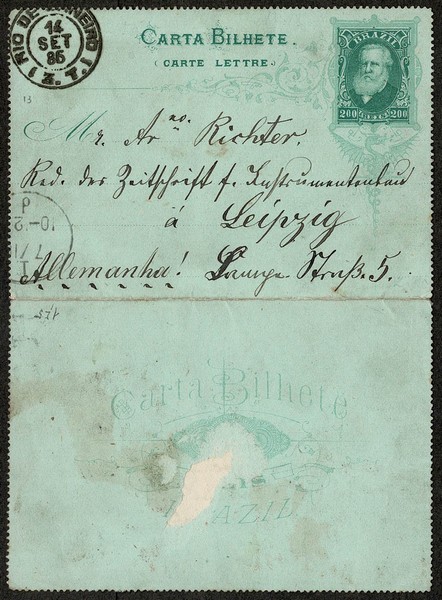 RIO DE JANEIRO
14
SET
85
(Z.T.)
CARTA BILHETE.
(CARTE LETTRE)
BRAZIL
200 REIS 200
13
Mr. Arno. Richter.
Red. des Zeitschrift f. Instrumentenbau
á Leipzig
Allemanha! Lampe Straße 5.
10-2
Carta Bilhete
BRAZIL